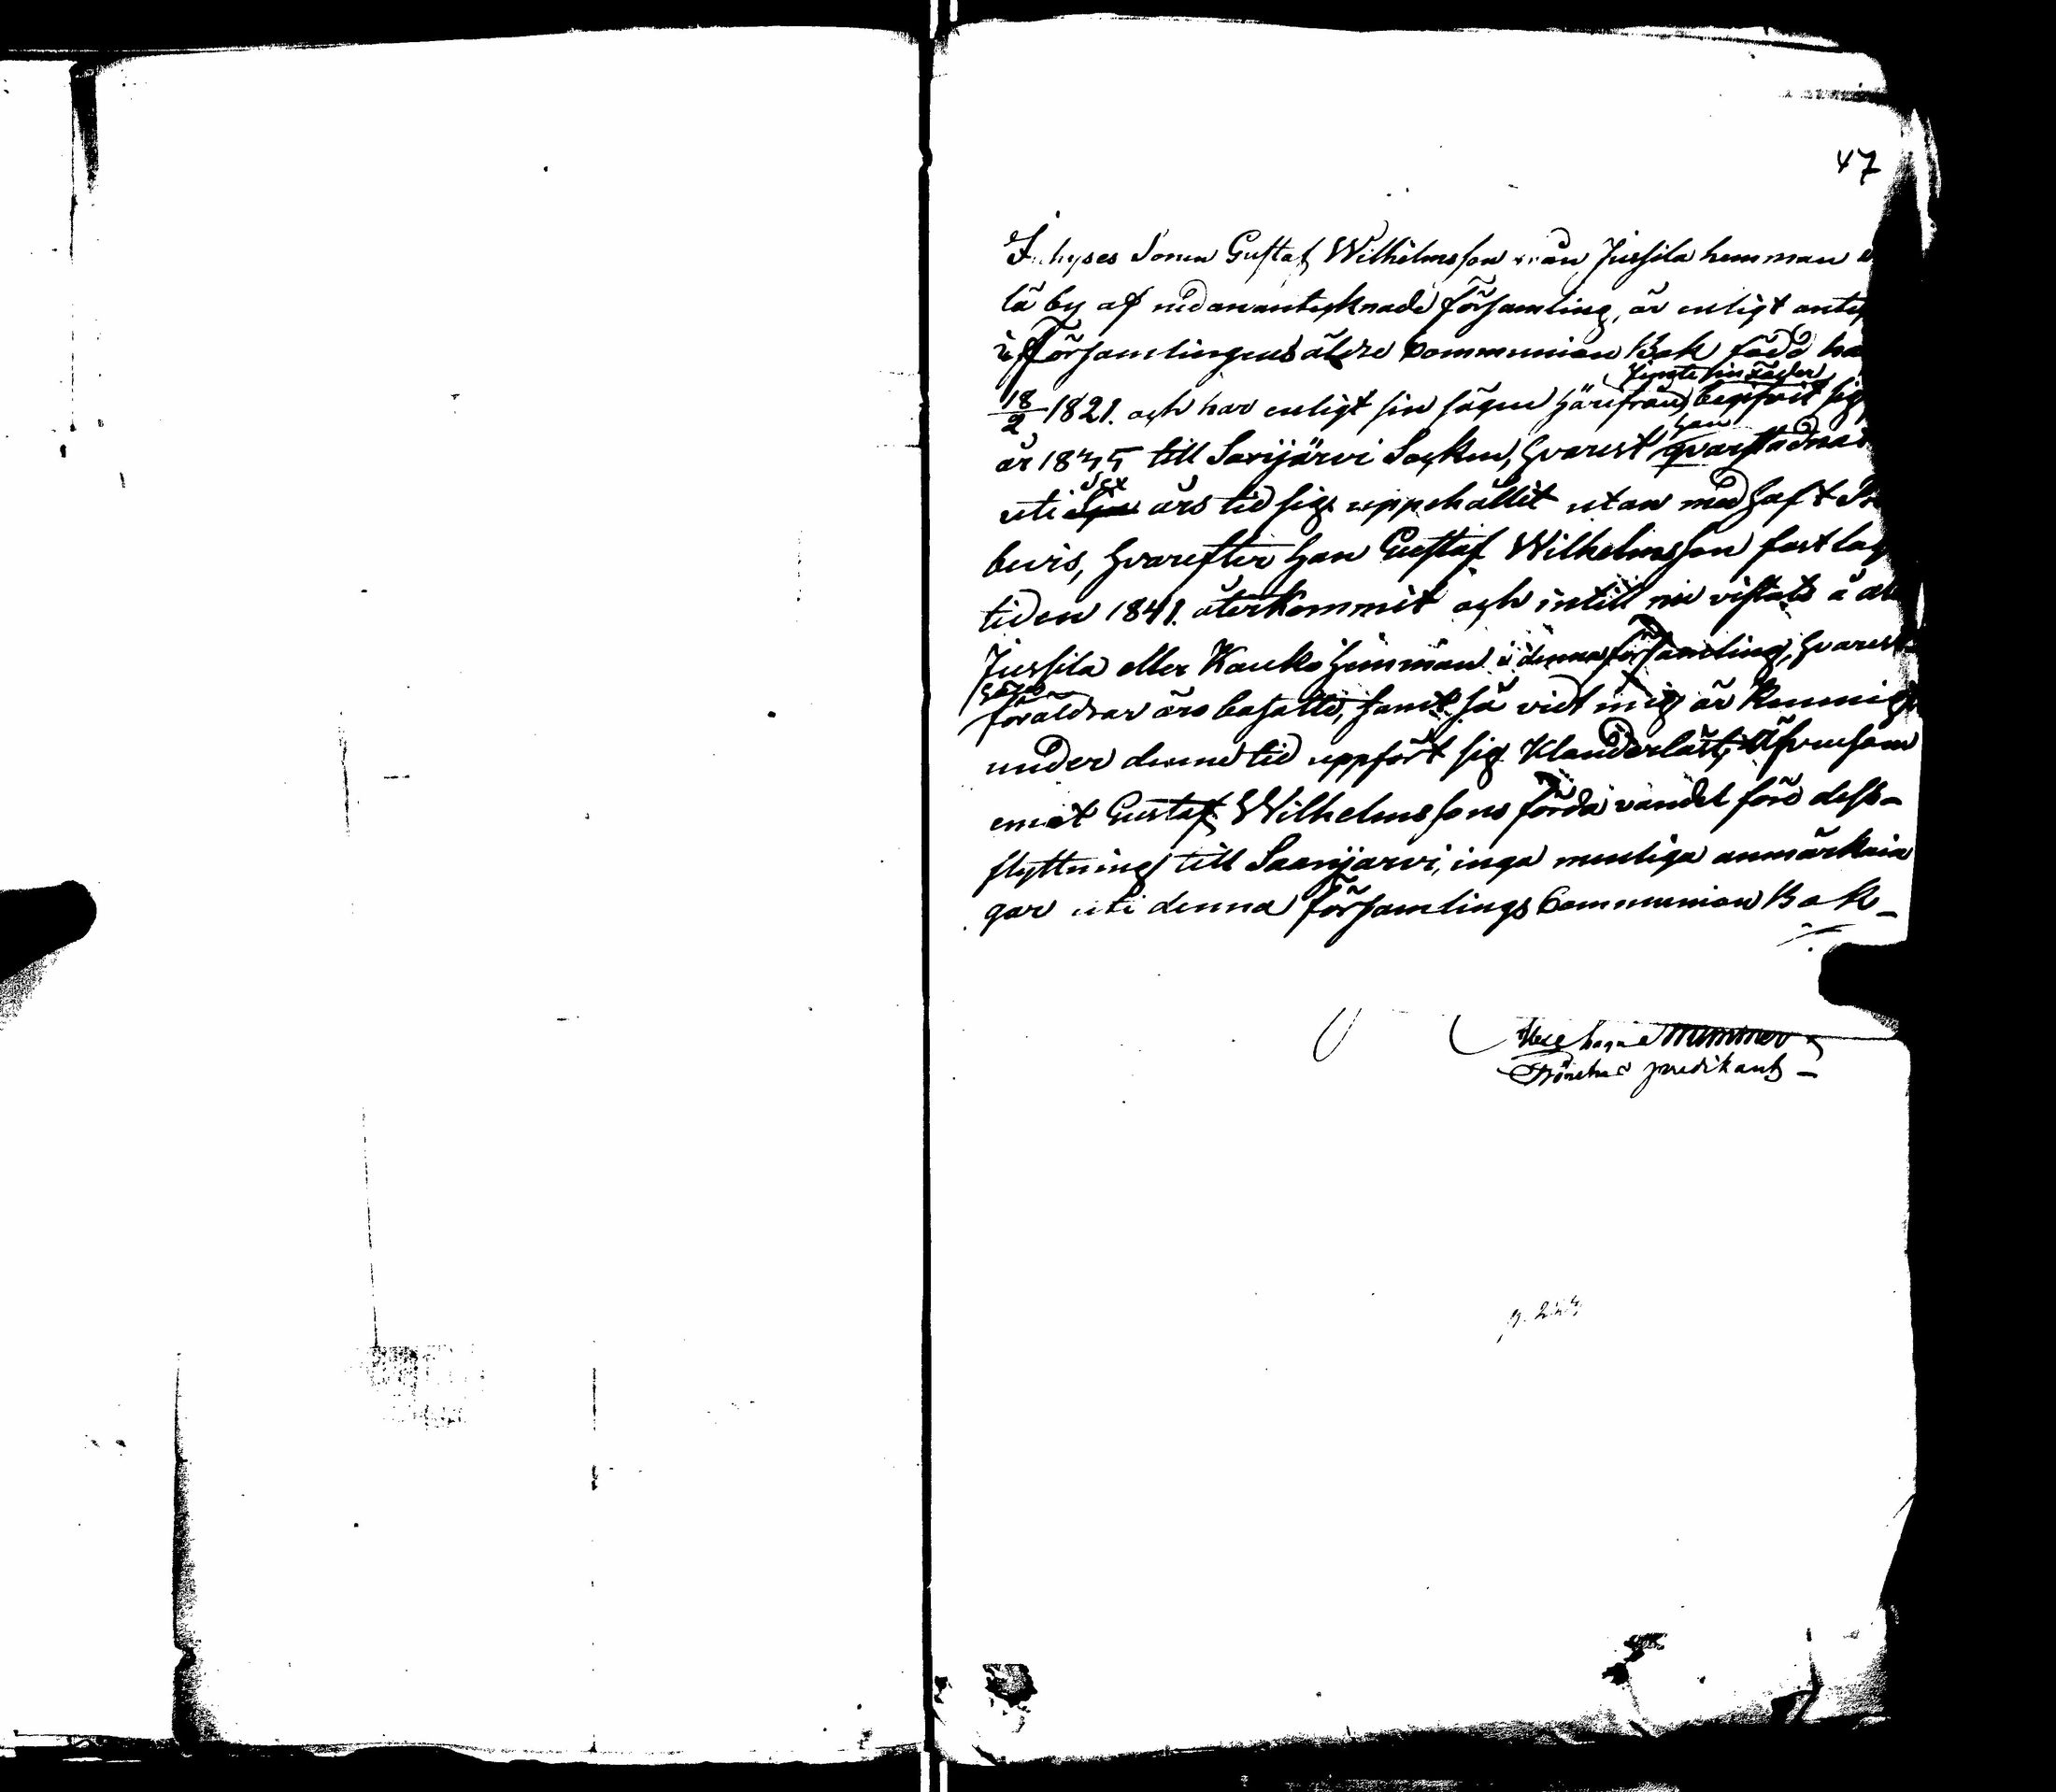 47
Inhyses Sonen Gustaf Wilhelmsson från Jussila hemman
lä by af nedanantecknade församling, är enligt anteck
i Församlingens äldre Communion Bok född
18/2 1821. och har enligt sin sägen härifrån jemte sin fader begifvit sig
år 1835 till Sarijärvi Socken, hvarest han qvarstadnat
uti sex års tid sig uppehållit utan medhaft
bevis, hvarefter han Gustaf Wilhelmsson fastlags
tiden 1841. återkommit och intill nu vistats å
Jussila eller Kauko hemman i denna församling, hvarest
föräldrar äro bosatte, samt så vidt mig är kunnigt
under denne tid uppfört sig klanderlöst, Äfvensom
emot Gustaf Wilhelmssons förda vandel före dess
flyttning till Saarijarvi, inga menliga anmärknin
gar uti denna Församlings Communion Bok
predikant